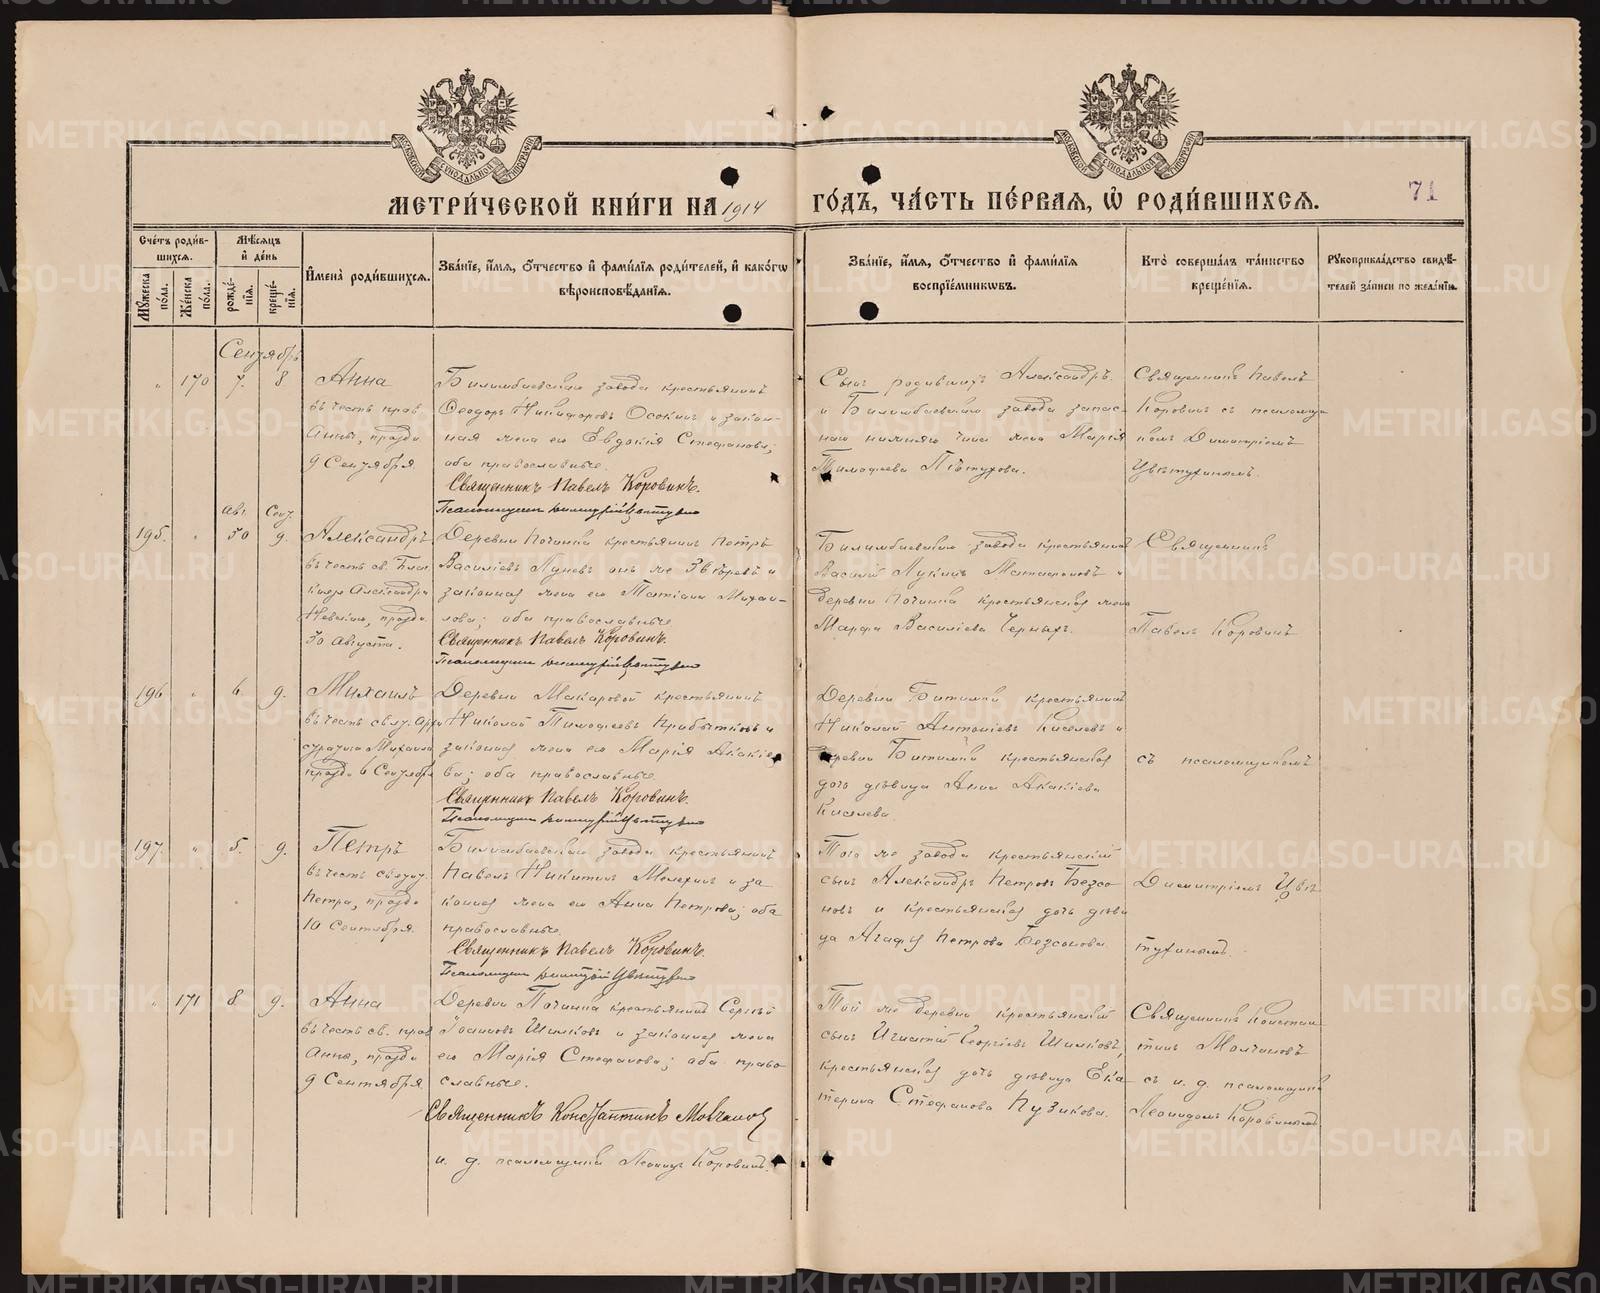 МЕТРИ́ЧЕСКОЙ КНИ́ГИ НА 1914 ГО́ДЪ, ЧА́СТЬ ПЕ́РВАЯ, Ѡ РОДИ́ВШИХСЯ.
71
Сче́тъ роди́в-
шихся.
Мꙋ́жеска по́ла.
Же́нска по́ла.
Мѣ́сяцъ и́ де́нь
рожде́-
нїя.
креще́-
нїя.
И҆мена̀ роди́вшихся.
Зва́нїе, и҆́мя, ѻ҆́тчество и҆ фами́лїя роди́телей, и҆ како́гѡ
вѣроисповѣ́данїя.
Зва́нїе, и҆́мя, ѻ҆́тчество и҆ фами́лїя
воспрїе́мникѡвъ.
Кто̀ соверша́лъ та́инство
креще́нїя.
Рꙋкоприкла́дство свидѣ́-
телей за́писи по жела́нїю.
Сентябрь
" 170 7. 8
Анна
въ честь прав.
Анны, праздн.
9 Сентября.
Билимбаевскаго завода крестьянинъ
Ѳеодоръ Никифоровъ Осокинъ и закон-
ная жена его Евдокія Стефанова;
оба православные.
Священникъ Павелъ Коровинъ.
Псаломщикъ Димитрій Цвѣтухинъ
Сынъ родившихъ Александръ
и Билимбаевскаго завода запас-
наго нижняго чина жена Марія
Тимофеева Пѣтухова.
Священникъ Павелъ
Коровинъ съ псаломщи-
комъ Димитріемъ
Цвѣтухинымъ.
Авг. Сент.
195. " 30 9.
Александръ
въ честь св. Благ.
Князя Александра
Невскаго, праздн.
30 Августа.
Деревни Починка крестьянинъ Петръ
Василіевъ Луневъ онъ же Звѣревъ и
законная жена его Татіана Михаи-
лова; оба православные
Священникъ Павелъ Коровинъ.
Псаломщикъ Димитрій Цвѣтухинъ
Билимбаевскаго завода крестьянинъ
Василій Лукинъ и
деревни Починка крестьянская жена
Марфа Василіева Черныхъ.
Священникъ
Павелъ Коровинъ
196 " 6 9.
Михаилъ
въ честь
Михаила
праздн. 6 Сентября
Деревни Макаровой крестьянинъ
Николай Тимофеевъ Прибытковъ и
законная жена его Марія Акакіе-
ва; оба православные.
Священникъ Павелъ Коровинъ.
Псаломщикъ Димитрій Цвѣтухинъ
Деревни Битимки крестьянинъ
Николай Антоніевъ Киселевъ и
деревни Битимки крестьянская
дочь дѣвица Анна Акакіева
Киселева
съ псаломщикомъ
197. " 5. 9.
Петръ
въ честь
Петра, праздн.
10 Сентября.
Билимбаевскаго завода крестьянинъ
Павелъ Никитинъ Мелехинъ и за-
конная жена его Анна Петрова; оба
православные.
Священникъ Павелъ Коровинъ.
Псаломщикъ Димитрій Цвѣтухинъ
Того же завода крестьянскій
сынъ Александръ Петровъ Безсо-
новъ и крестьянская дочь дѣви-
ца Агафія Петрова Безсонова.
Димитріемъ Цвѣ-
тухинымъ.
" 171 8 9.
Анна
въ честь св. прав.
Анны, праздн.
9 Сентября
Деревни Починка крестьянинъ Сергѣй
Іоанновъ Шилковъ и законная жена
его Марія Стефанова; оба право-
славные.
Священникъ Константинъ Молчановъ
и. д. псаломщика Леонидъ Коровинъ.
Той же деревни крестьянскій
сынъ Игнатій Георгіевъ Шилковъ,
крестьянская дочь дѣвица Ека-
терина Стефанова Пузикова.
Священникъ Констан-
тинъ Молчановъ
съ и. д. псаломщика
Леонидомъ Коровинымъ
METRIKI.GASO-URAL.RU